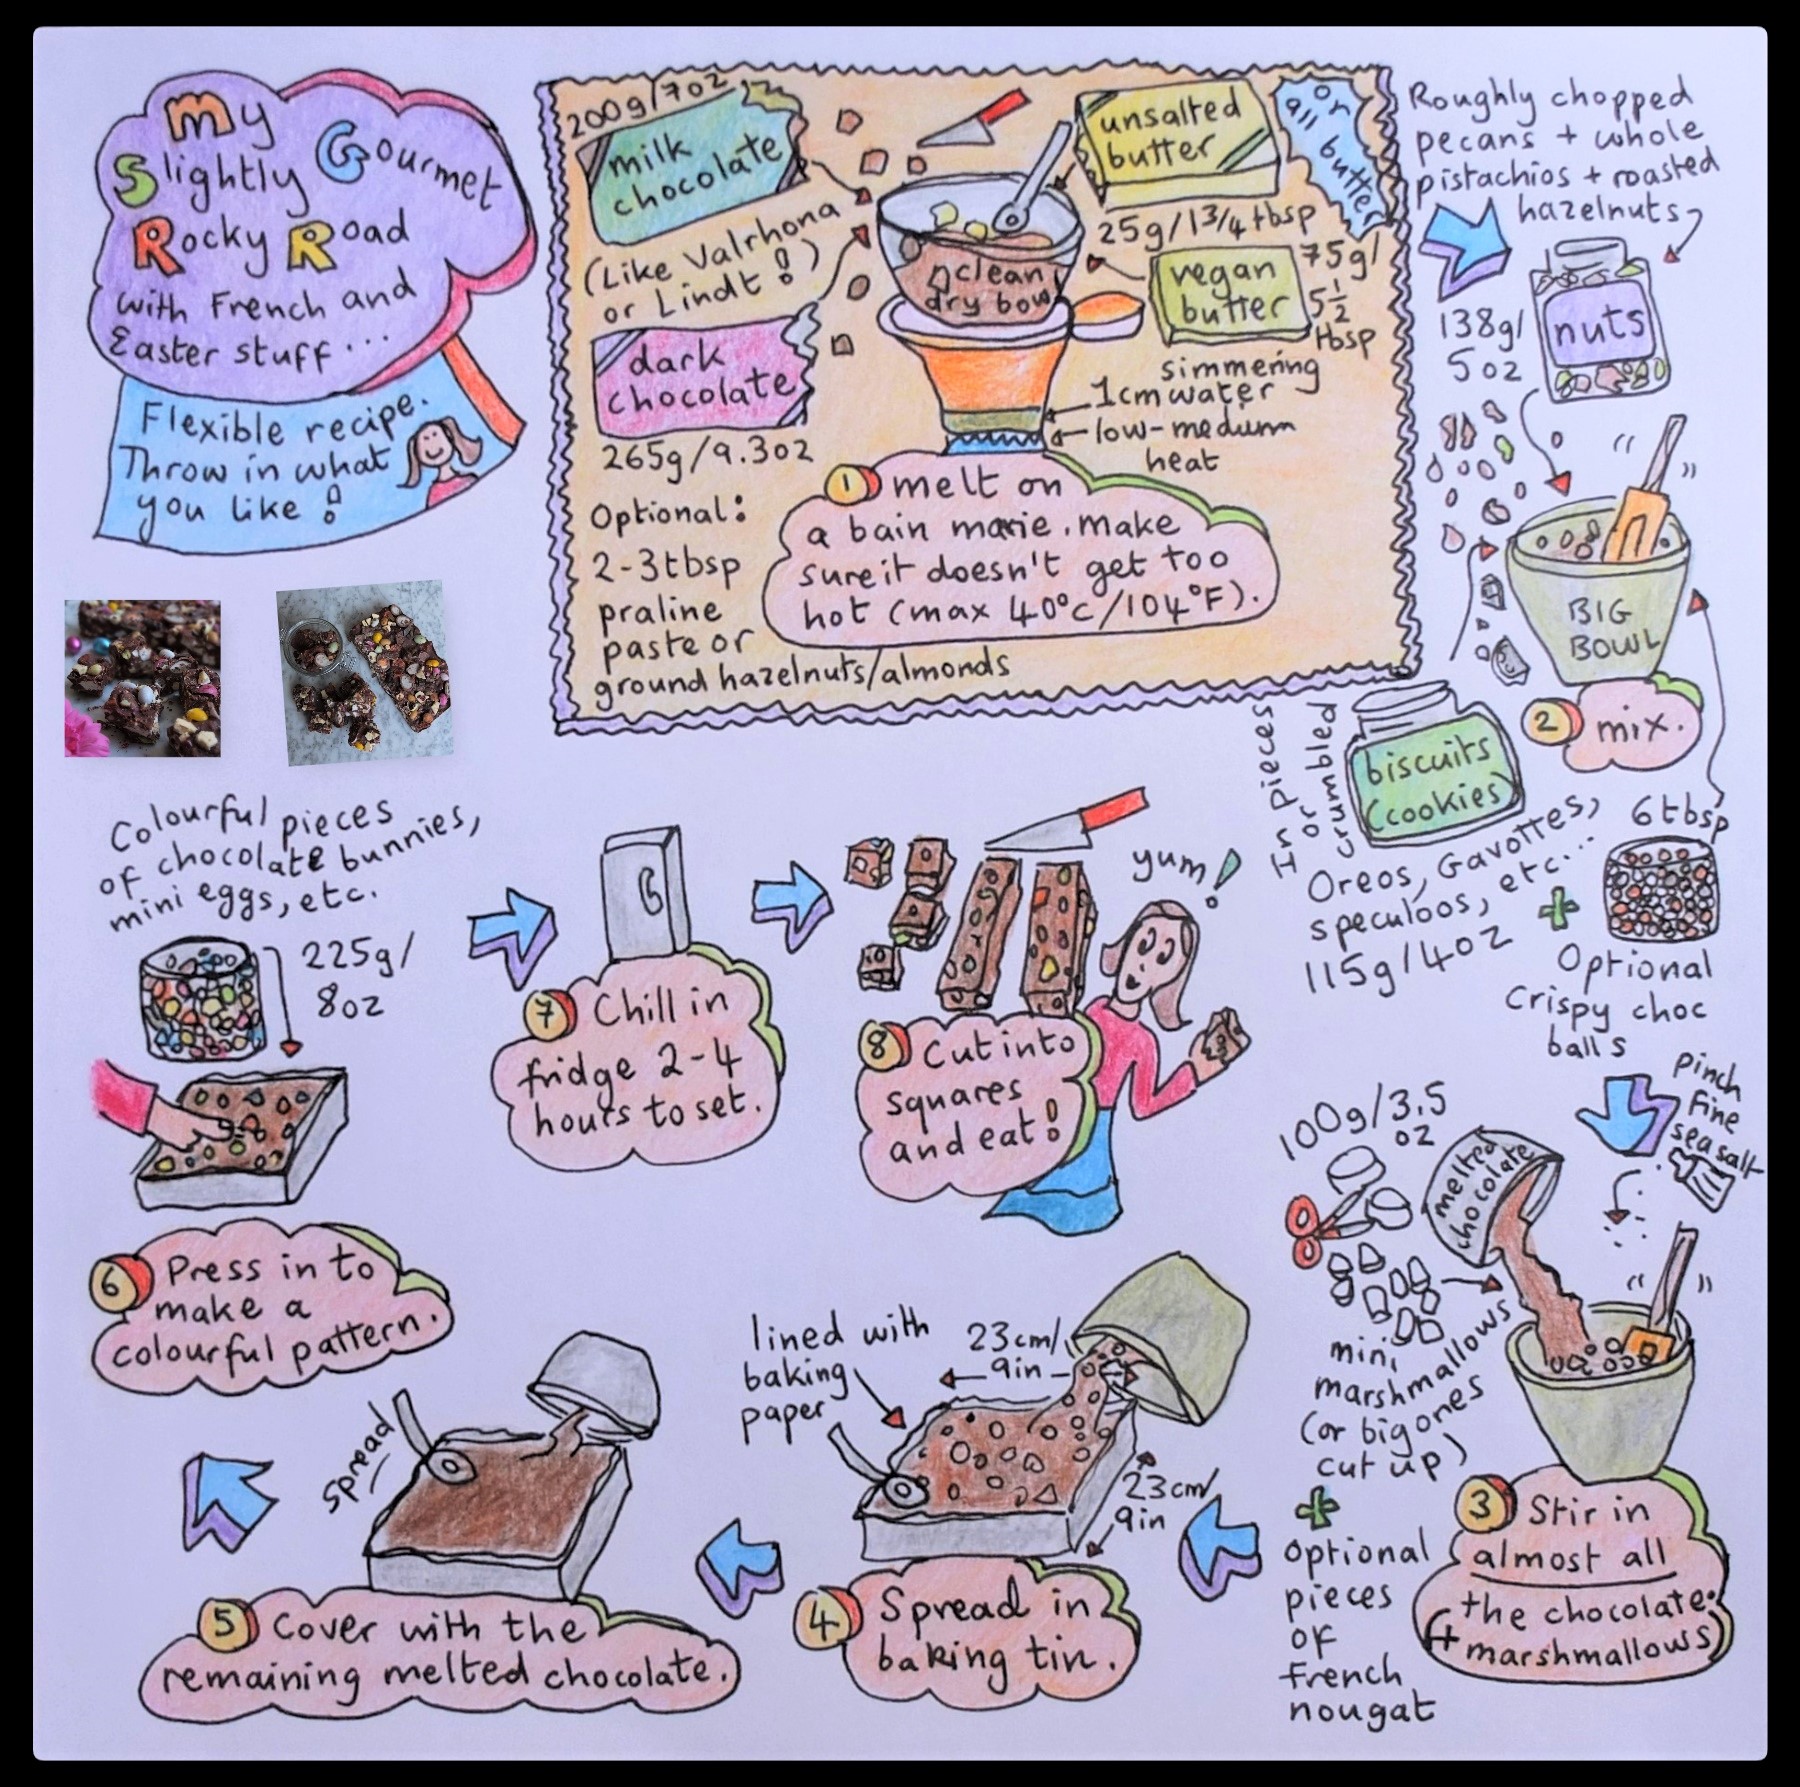 My
Slightly Gourmet
Rocky Road
with French and
Easter stuff...
Flexible recipe.
Throw in what
you like!
200g/7oz
milk
chocolate
(Like Valrhona
or Lindt!)
dark
chocolate
265g/9.3oz
Optional:
2-3tbsp
praline
paste or
ground hazelnuts/almonds
clean
dry bowl
unsalted
butter
or
all butter
25g/1 3/4 tbsp
vegan
butter
75g/
5 1/2
tbsp
simmering
1cm water
low-medium
heat
1 melt on
a bain marie. Make
sure it doesn't get too
hot (max 40°C/104°F).
Roughly chopped
pecans + whole
pistachios + roasted
hazelnuts
138g/
5oz
nuts
BIG
BOWL
2 mix.
In pieces
or
crumbled
biscuits
(cookies)
Oreos, Gavottes,
speculoos, etc...
115g/4oz
+
6tbsp
Optional
Crispy choc
balls
pinch
fine
sea salt
100g/3.5
oz
melted
chocolate
mini
marshmallows
(or big ones
cut up)
+
optional
pieces
of
french
nougat
3 Stir in
almost all
the chocolate.
(+ marshmallows)
lined with
baking
paper
23cm/
9in
23cm/
9in
4 Spread in
baking tin.
spread
5 Cover with the
remaining melted chocolate.
Colourful pieces
of chocolate bunnies,
mini eggs, etc.
225g/
8oz
6 Press in to
make a
colourful pattern.
7 Chill in
fridge 2-4
hours to set.
yum!
8 Cut into
squares
and eat!